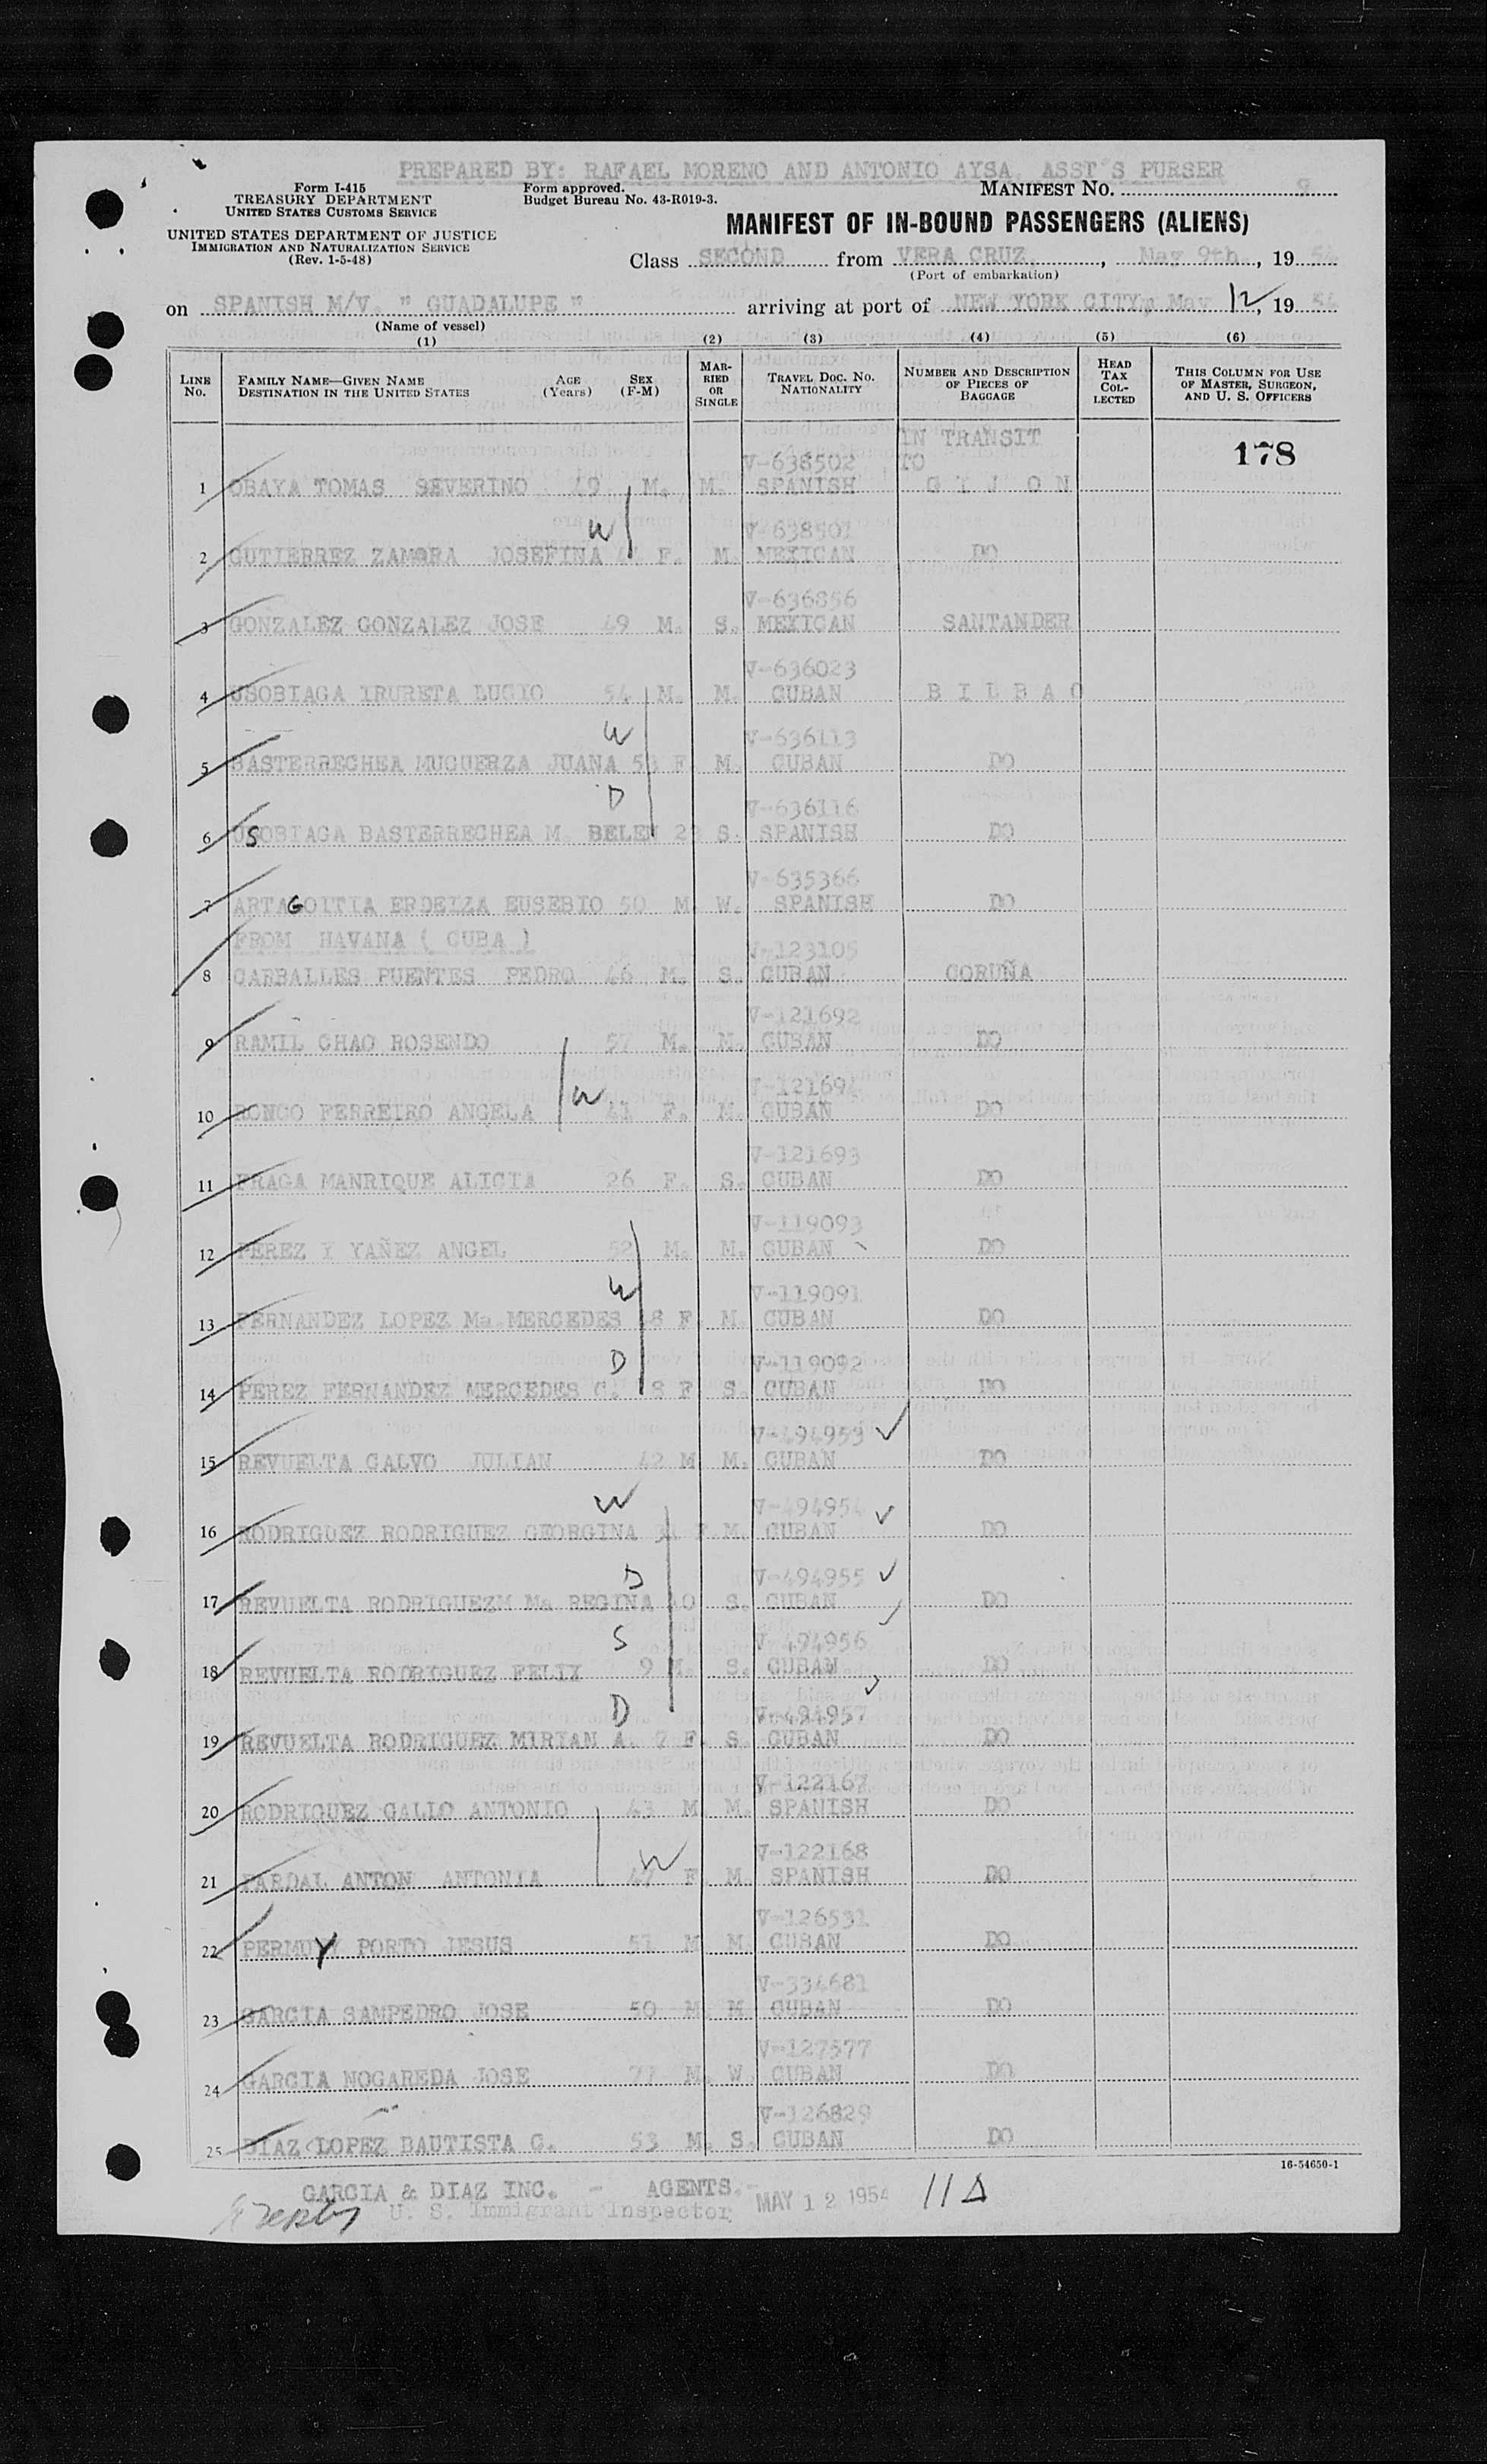 PREPARED BY: RAFAEL MORENO AND ANTONIO AYSA, ASST'S PURSER
Form I-415
TREASURY DEPARTMENT
UNITED STATES CUSTOMS SERVICE
UNITED STATES DEPARTMENT OF JUSTICE
IMMIGRATION AND NATURALIZATION SERVICE
(Rev. 1-5-48)
Form approved.
Budget Bureau No. 43-R019-3.
MANIFEST NO. 9
MANIFEST OF IN-BOUND PASSENGERS (ALIENS)
Class SECOND from VERA CRUZ, May 9th., 1954
(Port of embarkation)
on SPANISH M/V. " GUADALUPE " arriving at port of NEW YORK CITY, May 12, 1954
(Name of vessel)
(1) (2) (3) (4) (5) (6)
LINE No. FAMILY NAME—GIVEN NAME DESTINATION IN THE UNITED STATES AGE (Years) SEX (F-M) MARRIED OR SINGLE TRAVEL DOC. NO. NATIONALITY NUMBER AND DESCRIPTION OF PIECES OF BAGGAGE HEAD TAX COLLECTED THIS COLUMN FOR USE OF MASTER, SURGEON, AND U. S. OFFICERS
IN TRANSIT
V-638502 TO 178
1 OBAYA TOMAS SEVERINO 49 M. M. SPANISH G I J O N
W V-638501
2 GUTIERREZ ZAMORA JOSEFINA F. M. MEXICAN DO
V-636856
3 GONZALEZ GONZALEZ JOSE 49 M. S. MEXICAN SANTANDER
V-636023
4 USOBIAGA IRURETA LUCIO 54 M. M. CUBAN B I L B A O
W V-636113
5 BASTERRECHEA MUGUERZA JUANA F. M. CUBAN DO
D V-636116
6 USOBIAGA BASTERRECHEA M. BELEN S. SPANISH DO
V-635366
7 ARTAGOITIA ERDEIZA EUSEBIO 50 M. W. SPANISH DO
FROM HAVANA ( CUBA ) V-123105
8 CARBALLES PUENTES PEDRO 46 M. S. CUBAN CORUÑA
V-121692
9 RAMIL CHAO ROSENDO 57 M. M. CUBAN DO
W
10 RONCO FERREIRO ANGELA 41 F. M. CUBAN DO
V-121693
11 FRAGA MANRIQUE ALICIA 26 F. S. CUBAN DO
V-119093
12 PEREZ Y YAÑEZ ANGEL 52 M. M. CUBAN DO
W V-119091
13 FERNANDEZ LOPEZ Ma MERCEDES 48 F. M. CUBAN DO
D V-119092
14 PEREZ FERNANDEZ MERCEDES C. 8 F S. CUBAN DO
V-494953 ✓
15 REVUELTA CALVO JULIAN 42 M M. CUBAN DO
W V-494954 ✓
16 RODRIGUEZ RODRIGUEZ GEORGINA F. M. CUBAN DO
D V-494955 ✓
17 REVUELTA RODRIGUEZM Ma REGINA 10 S. CUBAN DO
S V-494956 ✓
18 REVUELTA RODRIGUEZ FELIX 9 M. S. CUBAN DO
D V-494957 ✓
19 REVUELTA RODRIGUEZ MIRIAN A. 7 F. S. CUBAN DO
V-122167
20 RODRIGUEZ GALLO ANTONIO 43 M. M. SPANISH DO
W V-122168
21 PARDAL ANTON ANTONIA 47 F. M. SPANISH DO
V-126531
22 PERMUY PORTO JESUS 51 M M. CUBAN DO
V-334681
23 GARCIA SAMPEDRO JOSE 50 M. M CUBAN DO
V-127577
24 GARCIA NOGAREDA JOSE 77 M. W. CUBAN DO
V-126829
25 DIAZ LOPEZ BAUTISTA G. 53 M. S. CUBAN DO
16-54650-1
GARCIA & DIAZ INC. - AGENTS.-
U. S. Immigrant Inspector MAY 12 1954 11 Δ